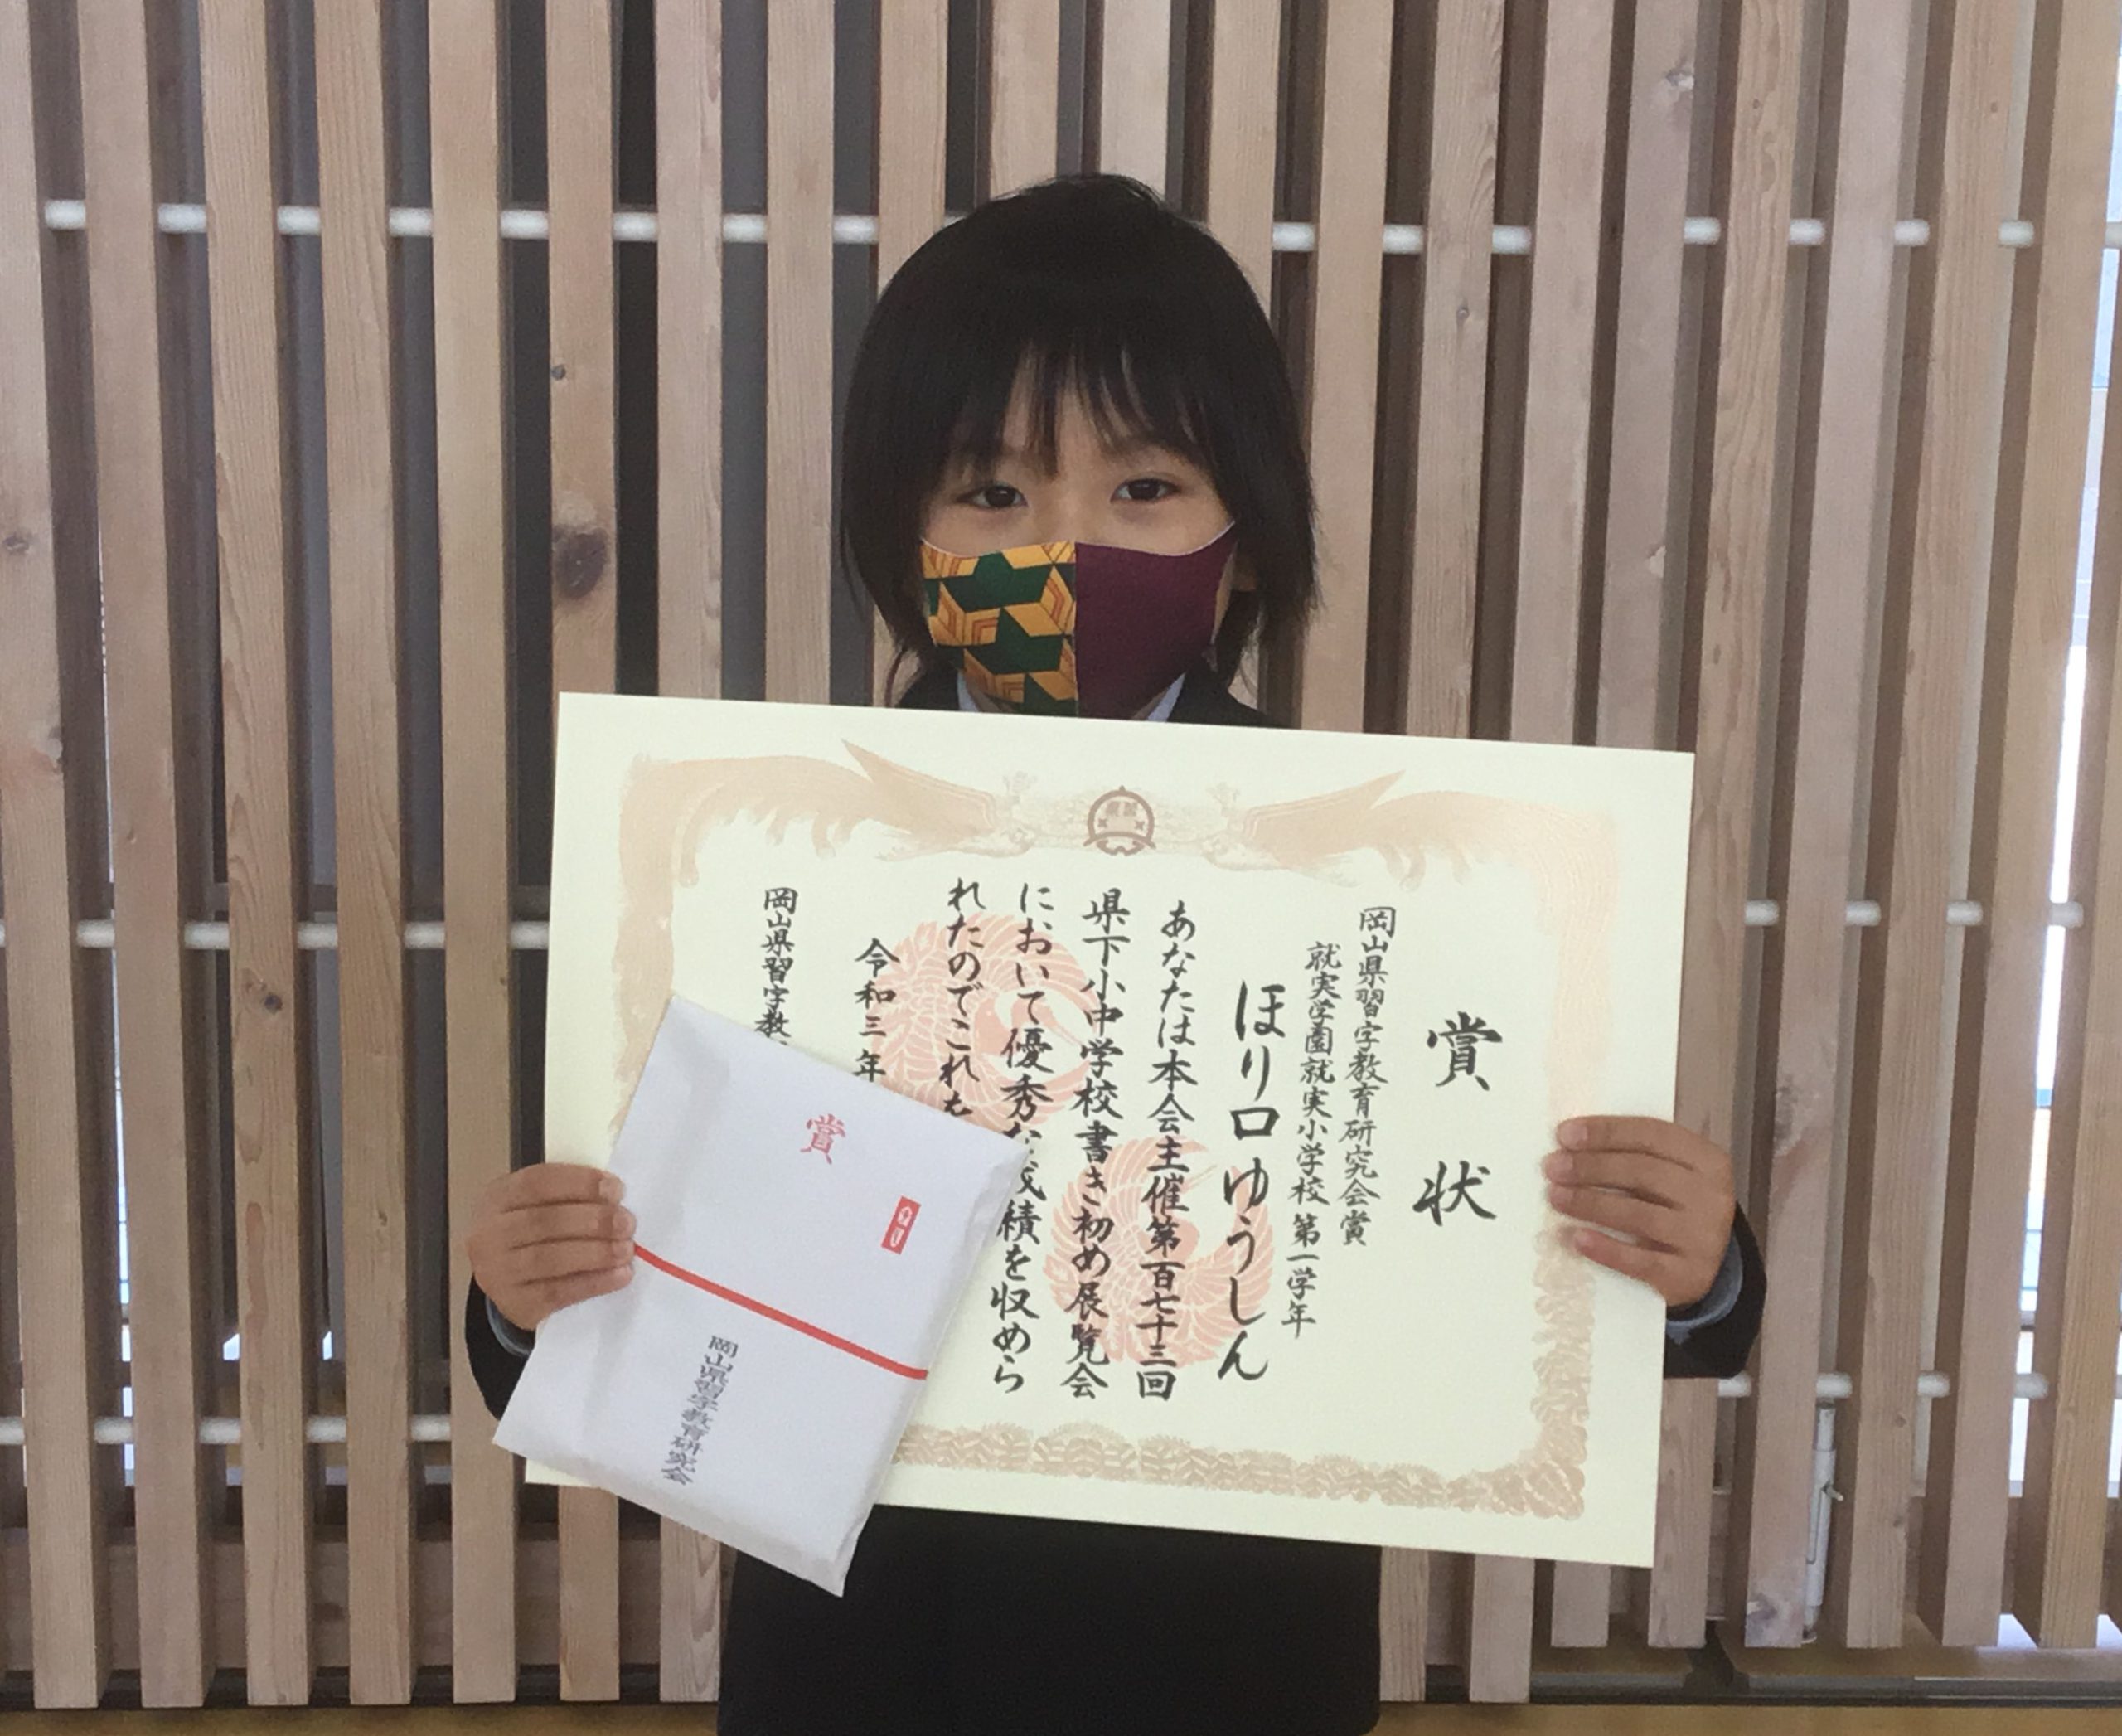 賞状
岡山県習字教育研究会賞
就実学園就実小学校 第一学年
ほり口 ゆうしん
あなたは本会主催第百七十三回
県下小中学校書き初め展覧会
において優秀な成績を収めら
れたのでこれを
令和三年
岡山県習字教
賞
岡山県習字教育研究会